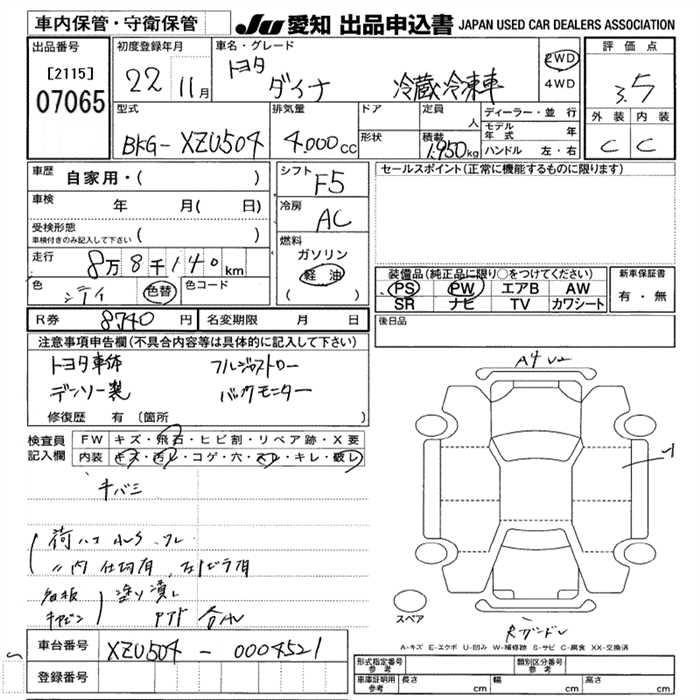 車内保管・守衛保管
JU 愛知 出品申込書 JAPAN USED CAR DEALERS ASSOCIATION
出品番号
[2115]
07065
初度登録年月
22 11月
車名・グレード
トヨタ
ダイナ 冷蔵冷凍車
2WD
4WD
評価点
3.5
外装 内装
C C
型式
BKG-XZU504
排気量
4.000cc
ドア
形状
定員 人
積載 1.950kg
ディーラー・並行
モデル年式 年
ハンドル 左・右
車歴 自家用・( )
車検 年 月( 日)
受検形態
車検付きのみ記入して下さい ( )
走行 8万8千140km
色 色替 色コード
R券 8740円 名変期限 月 日
シフト
F5
冷房
AC
燃料
ガソリン
軽油
( )
セールスポイント(正常に機能するものに限ります)
装備品(純正品に限り○をつけてください)
PS PW エアB AW
SR ナビ TV カワシート
新車保証書
有・無
後日品
注意事項申告欄(不具合内容等は具体的に記入して下さい)
トヨタ車体 フルジャストロー
デンソー製 バックモニター
修復歴 有(箇所 )
検査員
記入欄
FW キズ・飛石・ヒビ割・リペア跡・X要
内装 キズ・汚レ・コゲ・穴・スレ・キレ・破レ
キバミ
荷ハコ
〃内 仕切有
塗り潰し
車台番号 XZU504-0004521
登録番号
スペア
A-キズ E-エクボ U-凹み W-補修跡 S-サビ C-腐食 XX-交換済
形式指定番号
参考
類別区分番号
参考
車庫証明用
参考
長さ cm 幅 cm 高さ cm